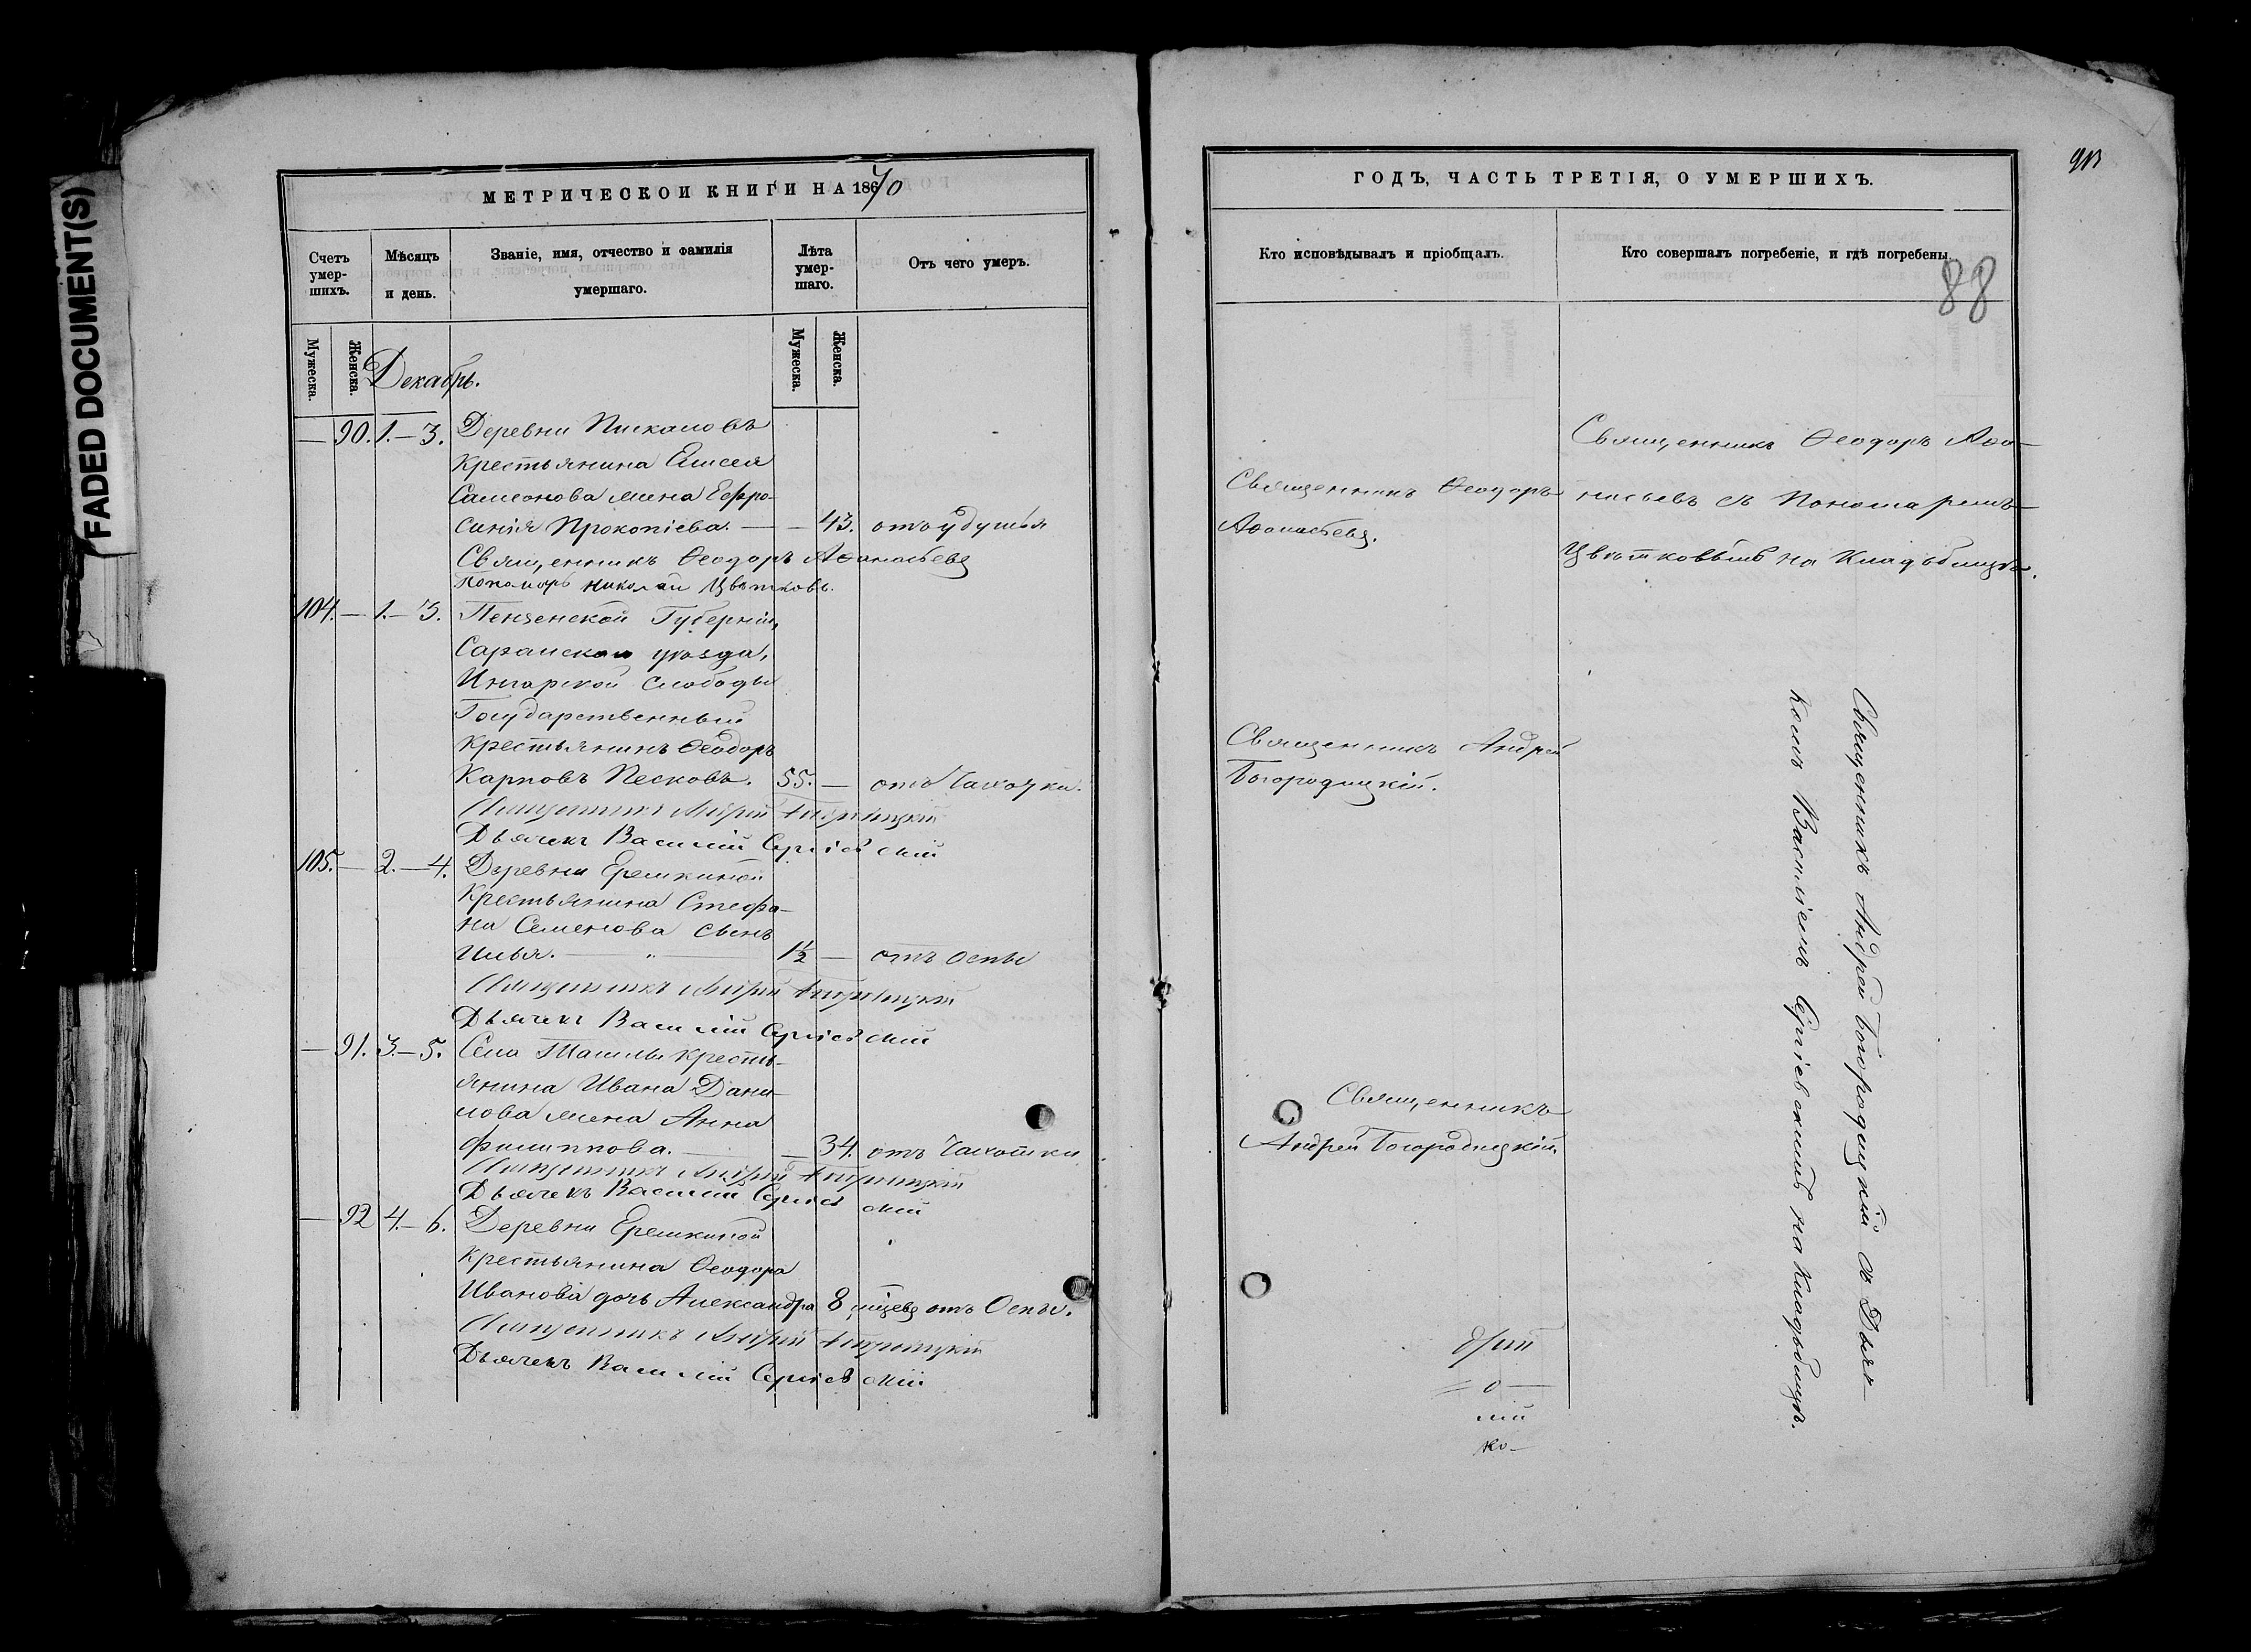 FADED DOCUMENT(S)
МЕТРИЧЕСКОЙ КНИГИ НА 1870
Счетъ умер-шихъ.
Мѣсяцъ и день.
Званіе, имя, отчество и фамилія умершаго.
Лѣта умер-шаго.
Отъ чего умеръ.
Мужеска.
Женска.
Мужеска.
Женска.
Декабрь.
— 90. 1.—3. Деревни Пискаловъ
крестьянина Елисея
Самсонова жена Ефро-
синія Прокопіева. — — 43. отъ удушья
Священникъ Ѳеодоръ Аѳанасьевъ
Пономарь Николай Цвѣтковъ.
104. — 1.—3. Пензенской Губерніи,
Саранскаго уѣзда,
Инзарской слободы
Государственный
крестьянинъ Ѳеодоръ
Карповъ Песковъ. 55. — отъ Чахотки.
Священникъ Андрей Богородицкій
Дьячекъ Василій Сергіевскій
105. — 2.—4. Деревни Еремкиной
крестьянина Стефа-
на Семенова сынъ
Илья. — „ — 1½ — отъ Оспы
Священникъ Андрей Богородицкій
Дьячекъ Василій Сергіевскій
— 91. 3.—5. Села Ташлы кресть-
янина Ивана Дани-
лова жена Анна
Филиппова. — — 34. отъ Чахотки
Священникъ Андрей Богородицкій
Дьячекъ Василій Сергіевскій
— 92 4.—6. Деревни Еремкиной
крестьянина Ѳеодора
Иванова дочь Александра 8 мѣсяцевъ отъ Оспы.
Священникъ Андрей Богородицкій
Дьячекъ Василій Сергіевскій
ГОДЪ, ЧАСТЬ ТРЕТІЯ, О УМЕРШИХЪ.
Кто исповѣдывалъ и пріобщалъ.
Кто совершалъ погребеніе, и гдѣ погребены.
88
Священникъ Ѳеодоръ
Аѳанасьевъ.
Священникъ Ѳеодоръ Аѳа-
насьевъ съ Пономаремъ
Цвѣтковымъ на Кладбищѣ.
Священникъ Андрей
Богородицкій.
Священникъ
Андрей Богородицкій.
Священникъ Андрей Богородицкій съ Дьяч-
комъ Василіемъ Сергіевскимъ на Кладбищѣ.
дрей
= о —
лій
ко-